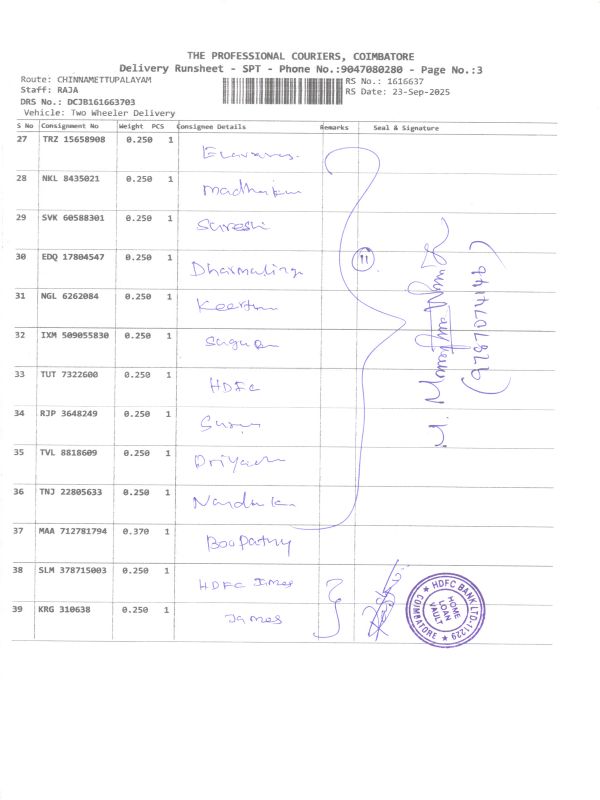 THE PROFESSIONAL COURIERS, COIMBATORE
Delivery Runsheet - SPT - Phone No.:9047080280 - Page No.:3
Route: CHINNAMETTUPALAYAM
RS No.: 1616637
Staff: RAJA
RS Date: 23-Sep-2025
DRS No.: DCJB161663703
Vehicle: Two Wheeler Delivery
S No Consignment No Weight PCS Consignee Details Remarks Seal & Signature
27 TRZ 15658908 0.250 1
28 NKL 8435021 0.250 1
29 SVK 60588301 0.250 1 Suresh
30 EDQ 17804547 0.250 1
31 NGL 6262084 0.250 1
32 IXM 509055830 0.250 1
33 TUT 7322600 0.250 1 HDFC
34 RJP 3648249 0.250 1
35 TVL 8818609 0.250 1
36 TNJ 22805633 0.250 1
37 MAA 712781794 0.370 1 Boopathy
38 SLM 378715003 0.250 1 HDFC James
39 KRG 310638 0.250 1 James
11
HDFC BANK LTD-11229
HOME
LOAN
VAULT
COIMBATORE